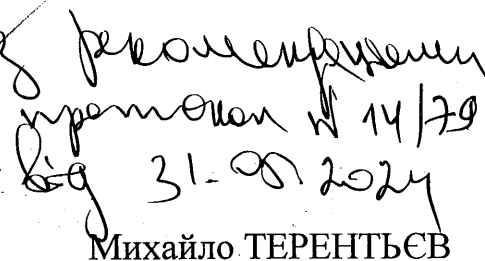 з рекомендаціями
протокол N 14/79
від 31.05 2024
Михайло ТЕРЕНТЬЄВ